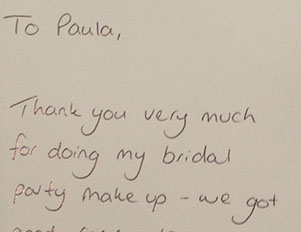 To Paula,
Thank you very much
for doing my bridal
party make up - we got